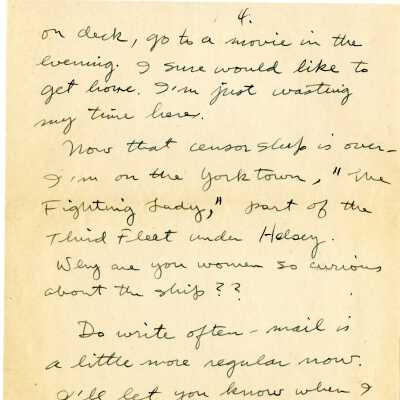 4.
on deck, go to a movie in the
evening. I sure would like to
get home. I'm just wasting
my time here.
Now that censorship is over-
I'm on the Yorktown, "The
Fighting Lady," part of the
Third Fleet under Halsey.
Why are you women so curious
about the ship??
Do write often - mail is
a little more regular now.
I'll let you know when I